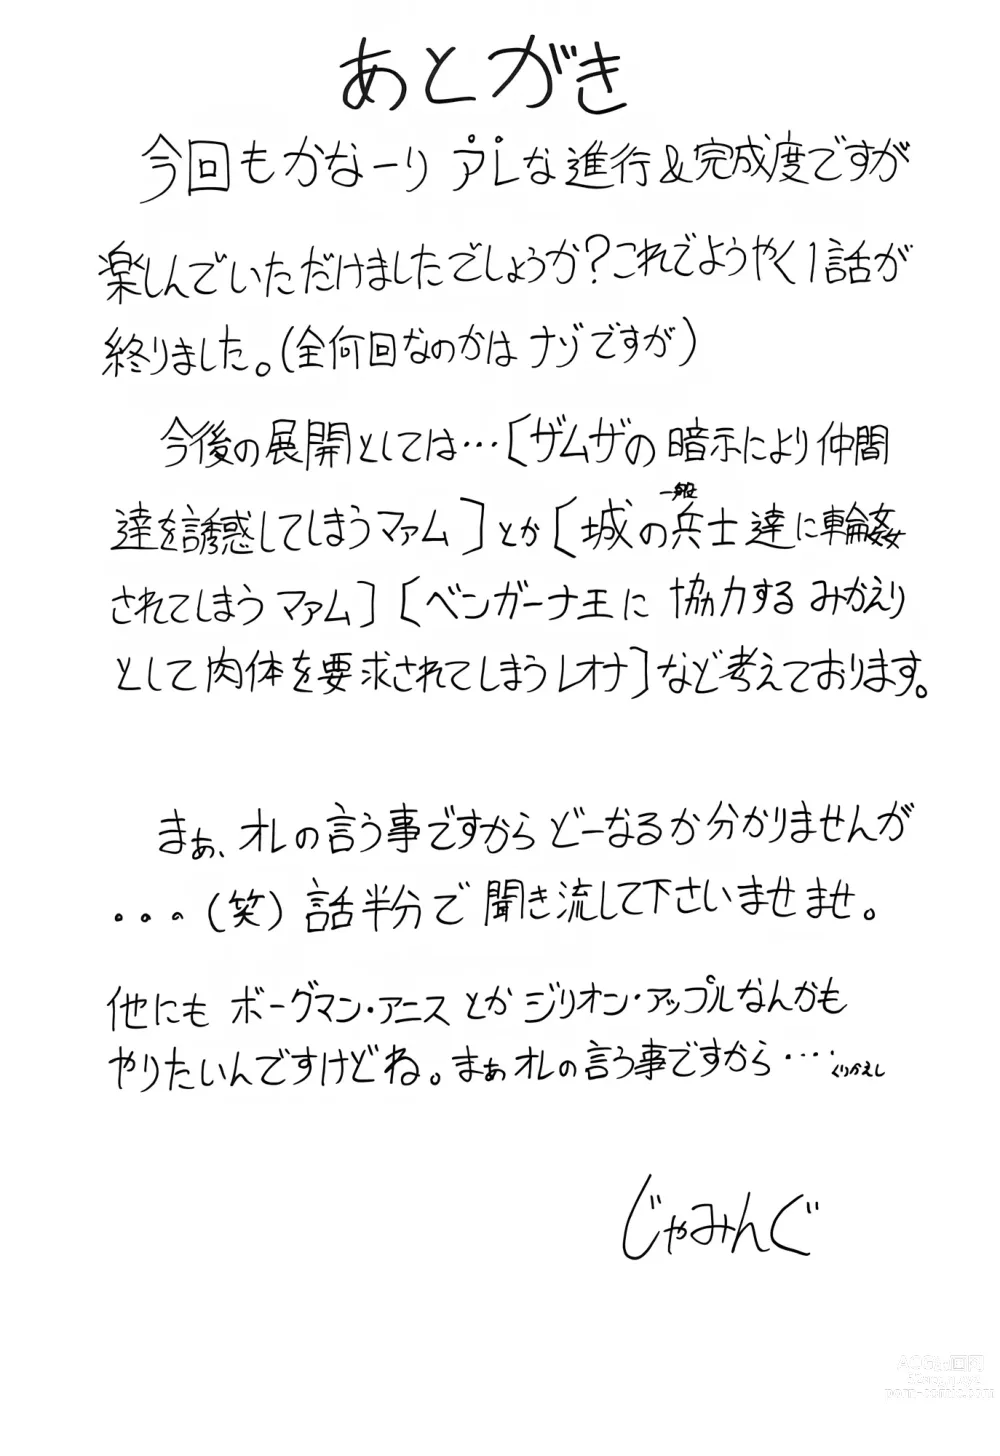 あとがき
今回もかなーり アレな進行&完成度ですが
楽しんでいただけましたでしょうか?これでようやく1話が
終りました。(全何回なのかは ナゾですが)
今後の展開としては…[ザムザの暗示により仲間
達を誘惑してしまうマァム]とか[城の一般兵士達に輪姦
されてしまう マァム][ベンガーナ王に 協力する みかえり
として肉体を要求されてしまうレオナ]など考えております。
まぁ、オレの言う事ですから どーなるか分かりませんが
。。。(笑) 話半分で 聞き流して下さいませませ。
他にも ボーグマン・アニス とか ジリオン・アップルなんかも
やりたいんですけどね。まぁオレの言う事ですから ‥‥くりかえし
じゃみんぐ
porn-comic.com